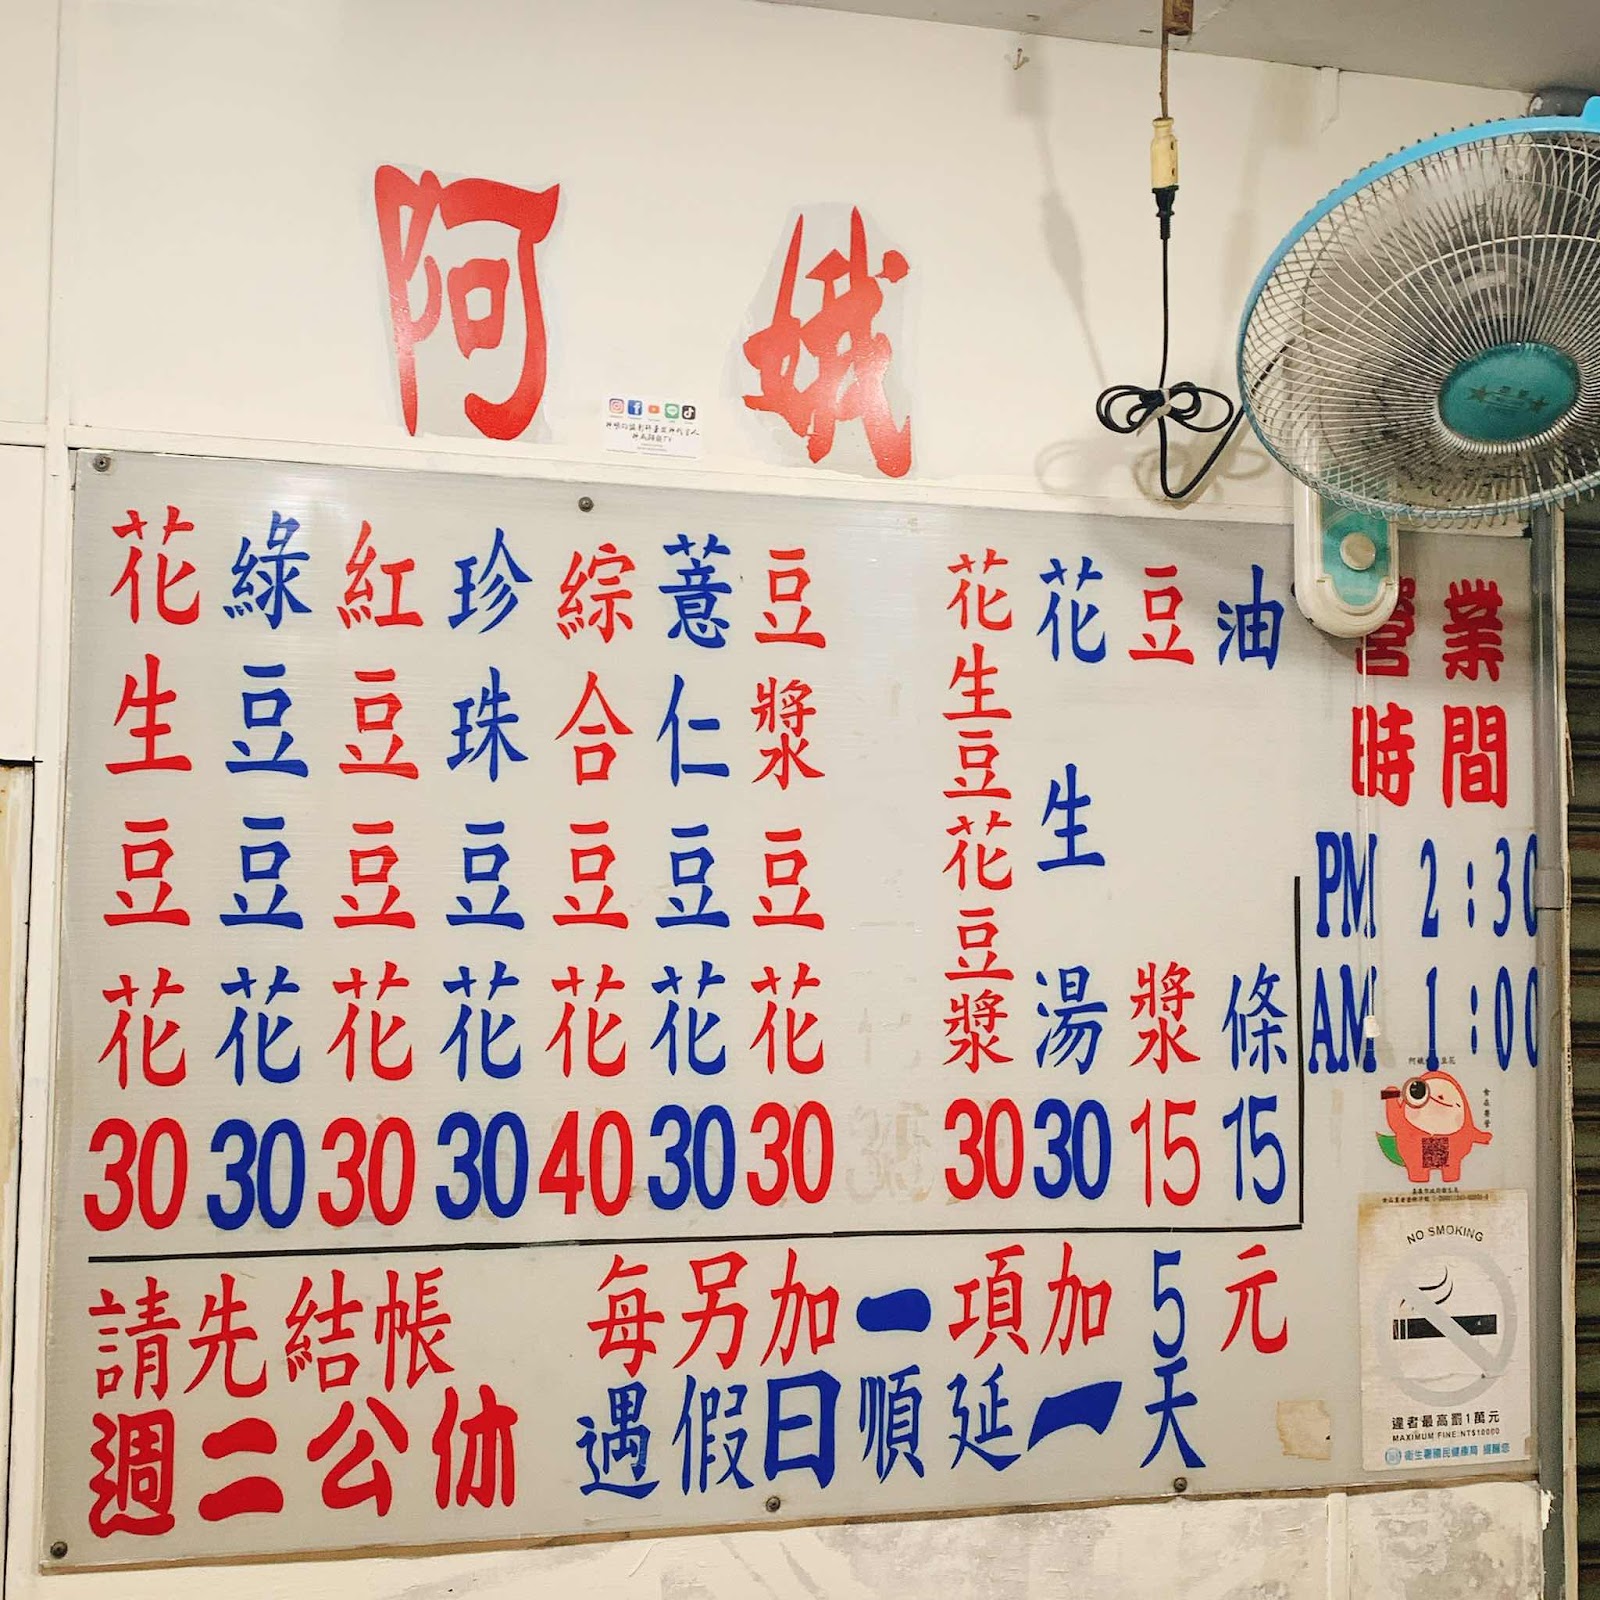 阿娥
花生豆花 30
綠豆豆花 30
紅豆豆花 30
珍珠豆花 30
綜合豆花 40
薏仁豆花 30
豆漿豆花 30
花生豆花豆漿 30
花生湯 30
豆漿 15
油條 15
營業
時間
PM 2:30
AM 1:00
請先結帳
每另加一項加5元
週二公休
遇假日順延一天
NO SMOKING
違者最高罰1萬元
MAXIMUM FINE:NT$10000
衛生署國民健康局 提醒您